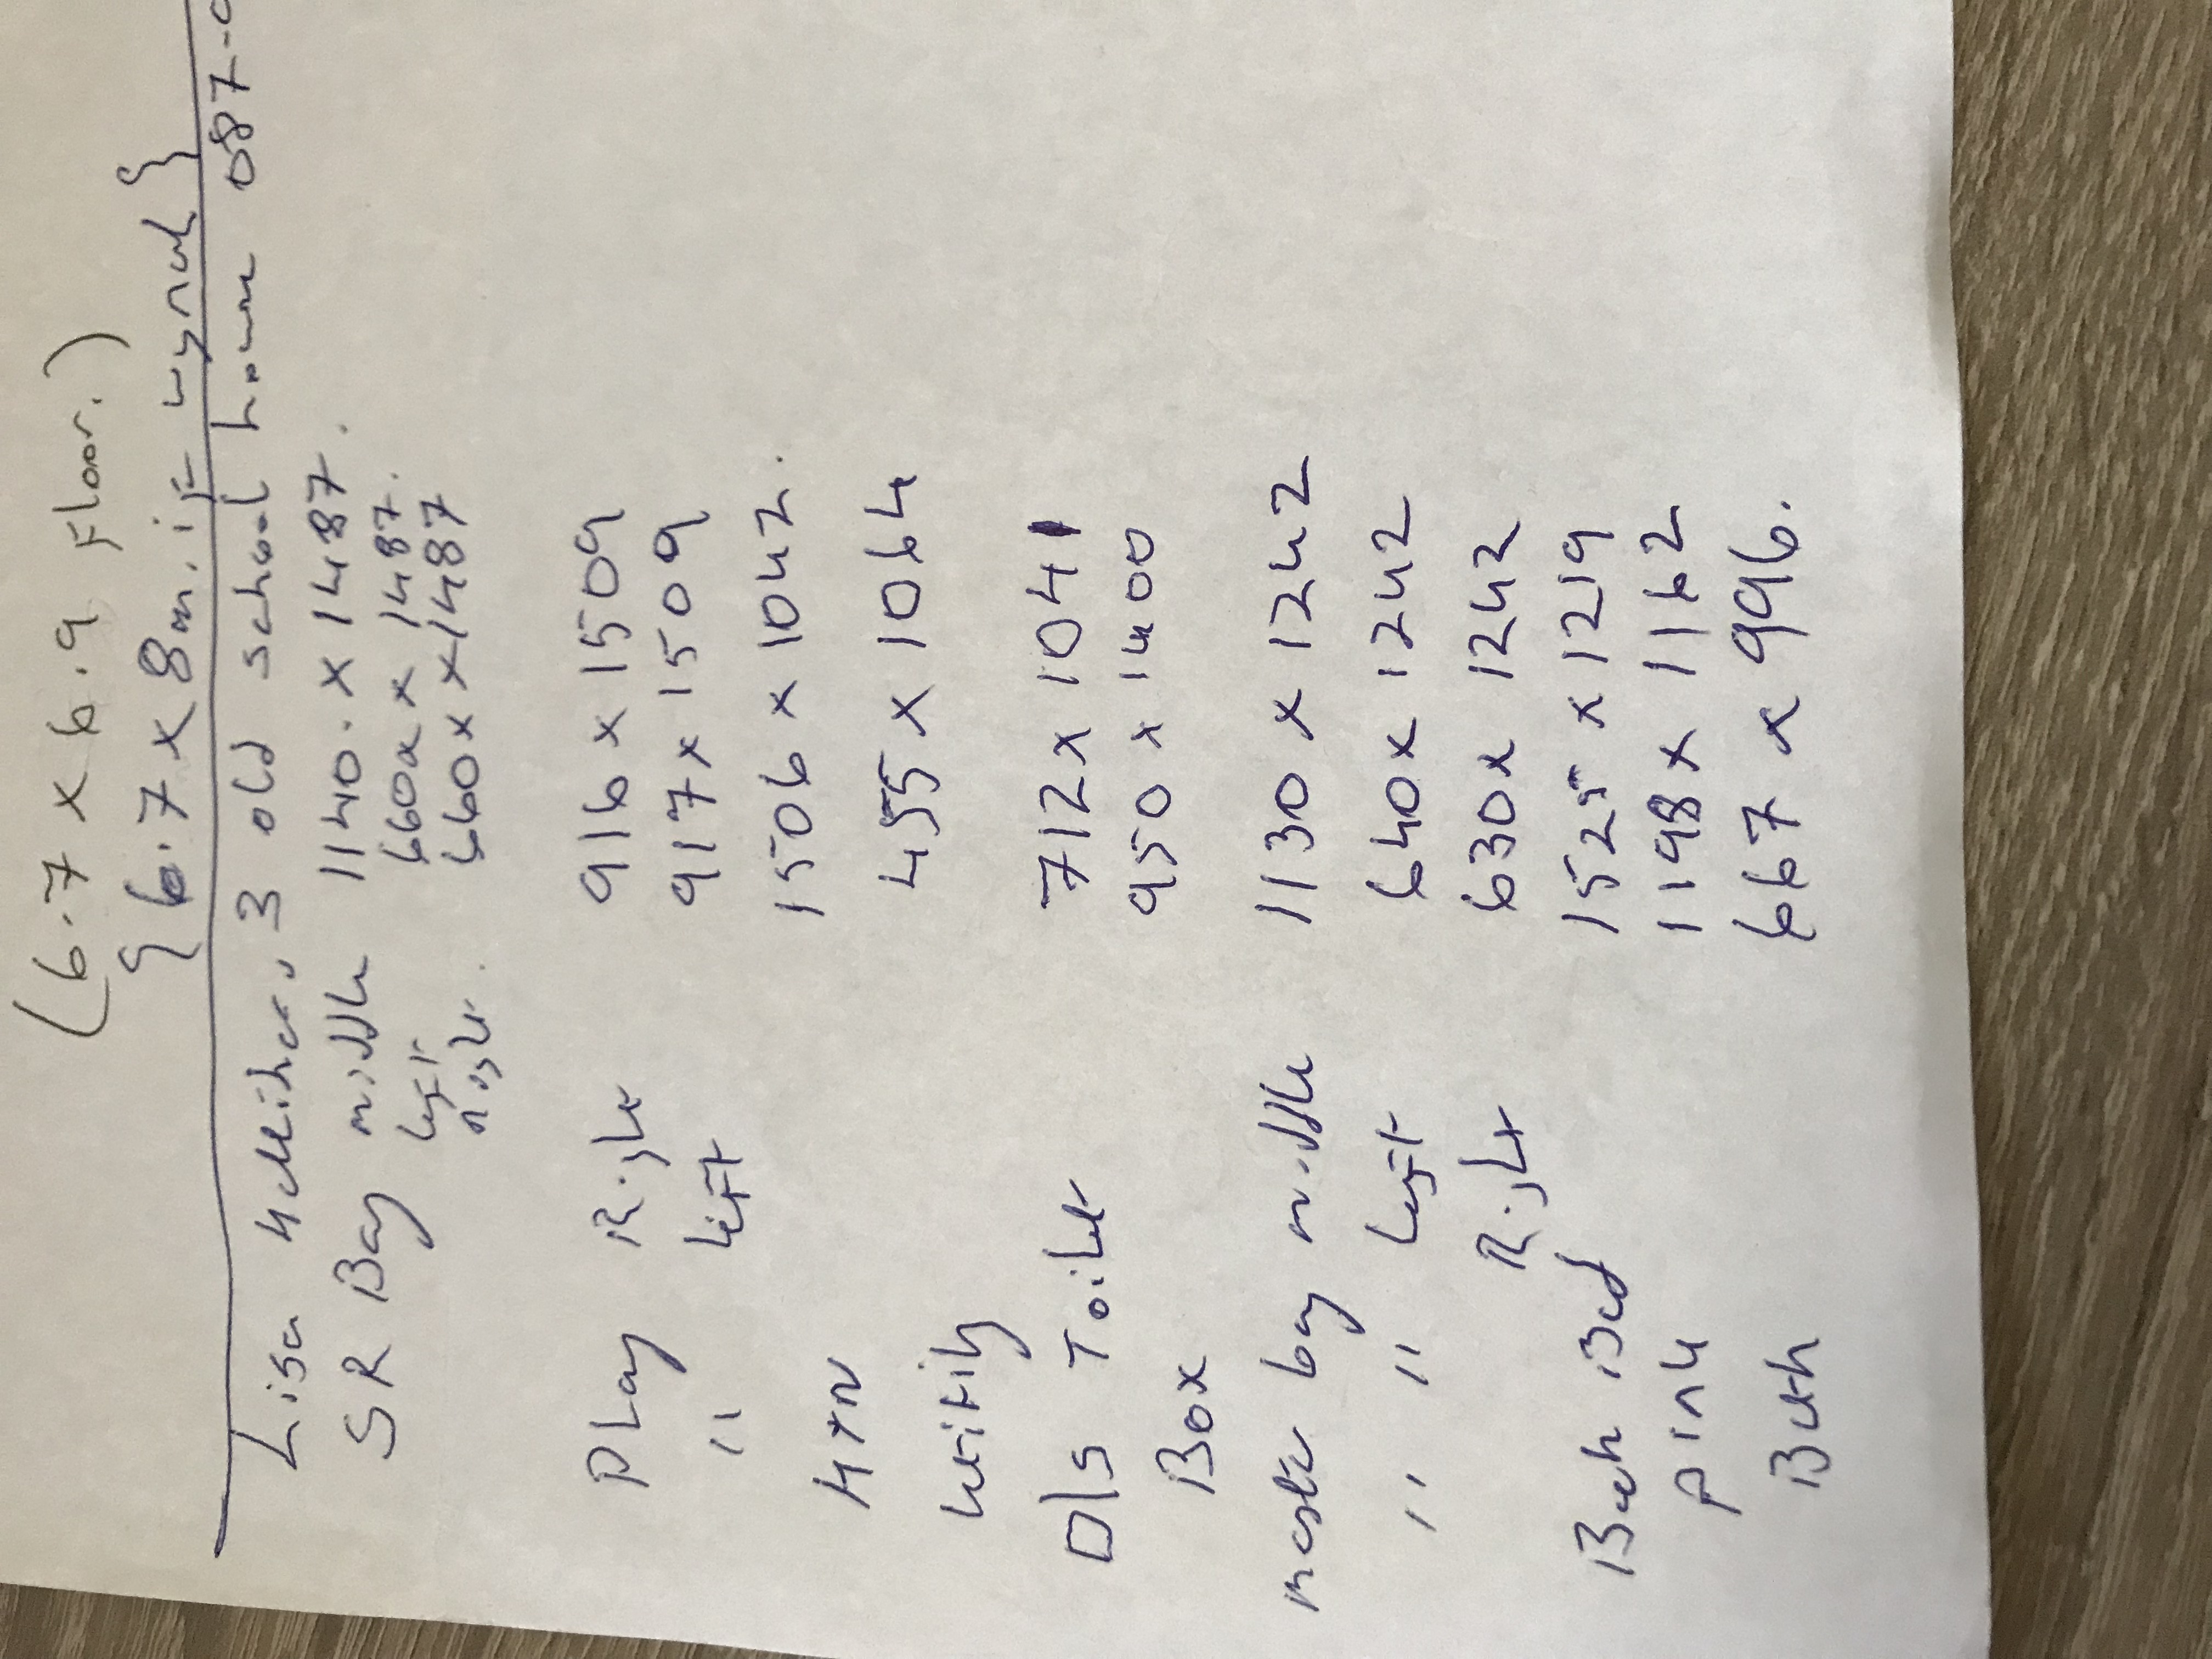 (6.7 x 6.9 Floor.)
{6.7 x 8m. if }
Lisa 3 old school house 087-
SR Bay middle 1140. x 1487.
left 660 x x 1487.
Right 660 x x 1487
Play Right 916 x 1509
" left 917 x 1509
KTN 1506 x 1042.
Utility 455 x 1064
D/s Toilet 712 x 1041
Box 950 x 1400
master bay middle 1130 x 1242
" " left 640 x 1242
Right 630 x 1242
Back Bed 1525 x 1219
Pink 1198 x 1162
Bath 667 x 996.